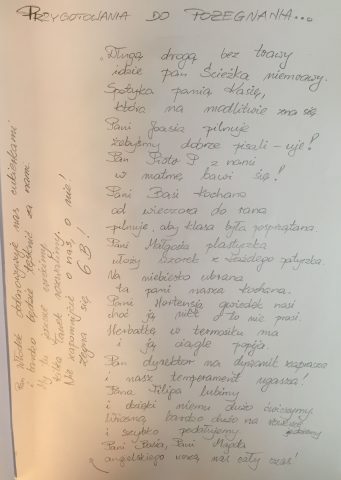 PRZYGOTOWANIA DO POŻEGNANIA...
Długą drogą bez trawy
idzie pan Ścieżka niemrawy.
Spotyka panią Kasię,
która na modlitwie zna się
Pani Joasia pilnuje
żebyśmy dobrze pisali - uje!
Pan Piotr P z nami
w matmę bawi się!
Pani Basi kochana
od wieczora do rana
pilnuje, aby klasa była posprzątana.
Pani Małgosia plastyczka
ułoży wzorek z każdego patyczka.
Na niebiesko ubrana
ta pani nasza kochana.
Pani Hortensja gwiazdek nosi
choć ją nikt o to nie prosi.
Herbatkę w termosiku ma
i ją ciągle popija.
Pan dyrektor na dywanik zaprasza
i nasz temperament ugasza!
Pana Filipa lubimy
i dzięki niemu dużo ćwiczymy.
Wiosną bardzo dużo na jeździmy
i szybko podołujemy.
Pani Basia, Pani Magda
angielskiego uczą nas cały czas!
Pan Władek nas cukierkami
i bardzo będzie tęsknić za nami.
My tu szóstek
kilka Tradek
Nie zapomnijcie o nas, o nie!
żegna się 6 B!